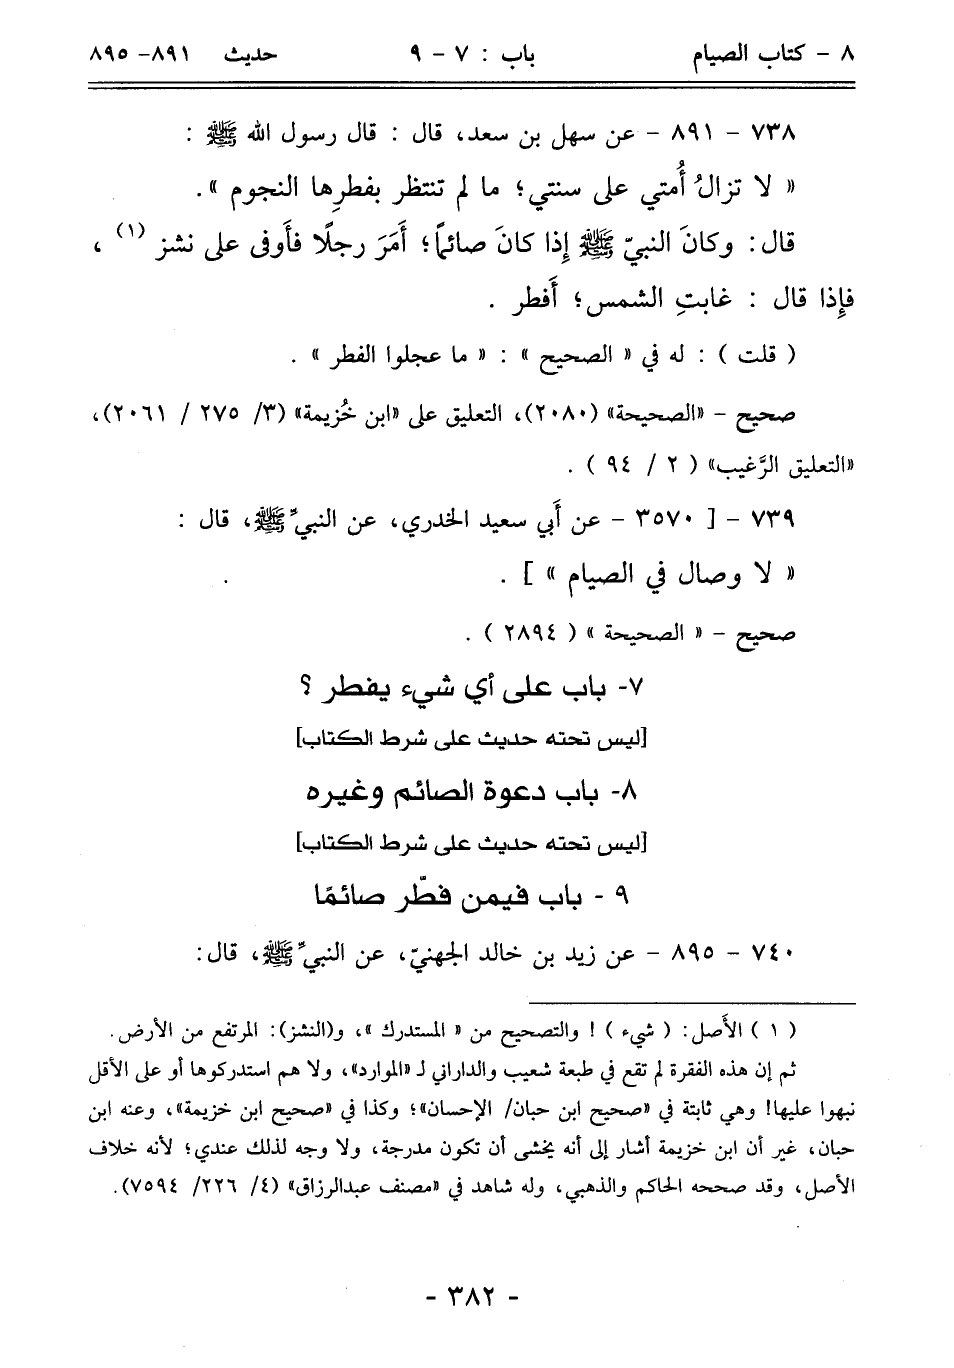 ٨ - كتاب الصيام باب : ٧ - ٩ حديث ٨٩١- ٨٩٥
٧٣٨ - ٨٩١ - عن سهل بن سعد، قال : قال رسول الله ﷺ :
« لا تزالُ أُمتي على سنتي؛ ما لم تنتظر بفطرِها النجوم ».
قال: وكانَ النبيّ ﷺ إِذا كانَ صائماً؛ أَمَرَ رجلًا فأَوفى على نشز (١) ،
فإِذا قال : غابتِ الشمس؛ أَفطر .
( قلت ) : له في « الصحيح » : « ما عجلوا الفطر » .
صحيح - «الصحيحة» (٢٠٨٠)، التعليق على «ابن خُزيمة» (٣/ ٢٧٥ / ٢٠٦١)،
«التعليق الرَّغيب» ( ٢ / ٩٤ ) .
٧٣٩ - [ ٣٥٧٠ - عن أَبي سعيد الخدري، عن النبيِّ ﷺ، قال :
« لا وصال في الصيام » ] .
صحيح - « الصحيحة » ( ٢٨٩٤ ) .
٧- باب على أي شيء يفطر ؟
[ليس تحته حديث على شرط الكتاب]
٨- باب دعوة الصائم وغيره
[ليس تحته حديث على شرط الكتاب]
٩ - باب فيمن فطّر صائمًا
٧٤٠ - ٨٩٥ - عن زيد بن خالد الجهنيّ، عن النبيِّ ﷺ، قال:
( ١ ) الأَصل: ( شيء ) ! والتصحيح من « المستدرك »، و(النشز): المرتفع من الأرض.
ثم إن هذه الفقرة لم تقع في طبعة شعيب والداراني لـ «الموارد»، ولا هم استدركوها أو على الأقل
نبهوا عليها! وهي ثابتة في «صحيح ابن حبان/ الإحسان»؛ وكذا في «صحيح ابن خزيمة»، وعنه ابن
حبان، غير أن ابن خزيمة أشار إلى أنه يخشى أن تكون مدرجة، ولا وجه لذلك عندي؛ لأنه خلاف
الأصل، وقد صححه الحاكم والذهبي، وله شاهد في «مصنف عبدالرزاق» (٤/ ٢٢٦/ ٧٥٩٤).
- ٣٨٢ -